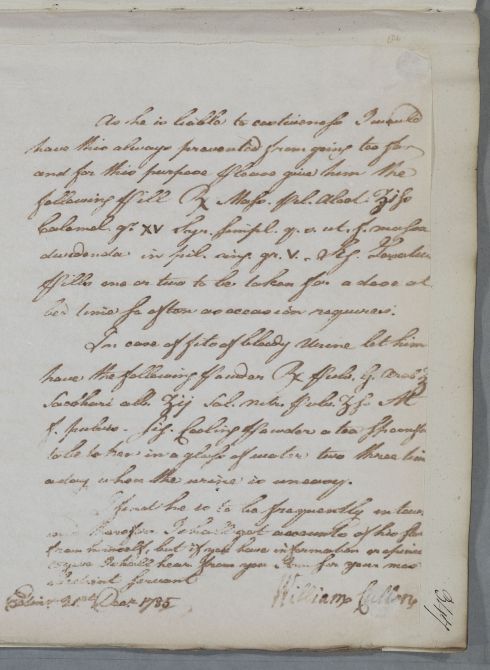 As he is liable to costiveness I would
have this always prevented from going too far
and for this purpose please give him the
following Pill Rx Mass. Pil. Aloet. ʒiſs
Calomel. gr XV Syr. Simpl. q. s. ut. f. massa
dividenda in pil. sing. gr. V. Sig. Laxative
Pills one or two to be taken for a dose at
bed time so often as occasion requires.
In case of fits of bloody Urine let him
have the following Powder Rx Pulv. G. Arab. ℥
Sacchari alb. ʒij Sal. nitr. Pulv. ʒſs M
f. pulvis. Sig. Cooling Powder a tea Spoonful
to be taken in a glass of water two three times
a day when the urine is uneasy.
I find he is to be frequently in town
and therefore I shall get accounts of his
from himself, but if you have information or
to give I shall hear from you I am for your
obedient servant
Edinr. 21st Decr. 1785 William Cullen
344